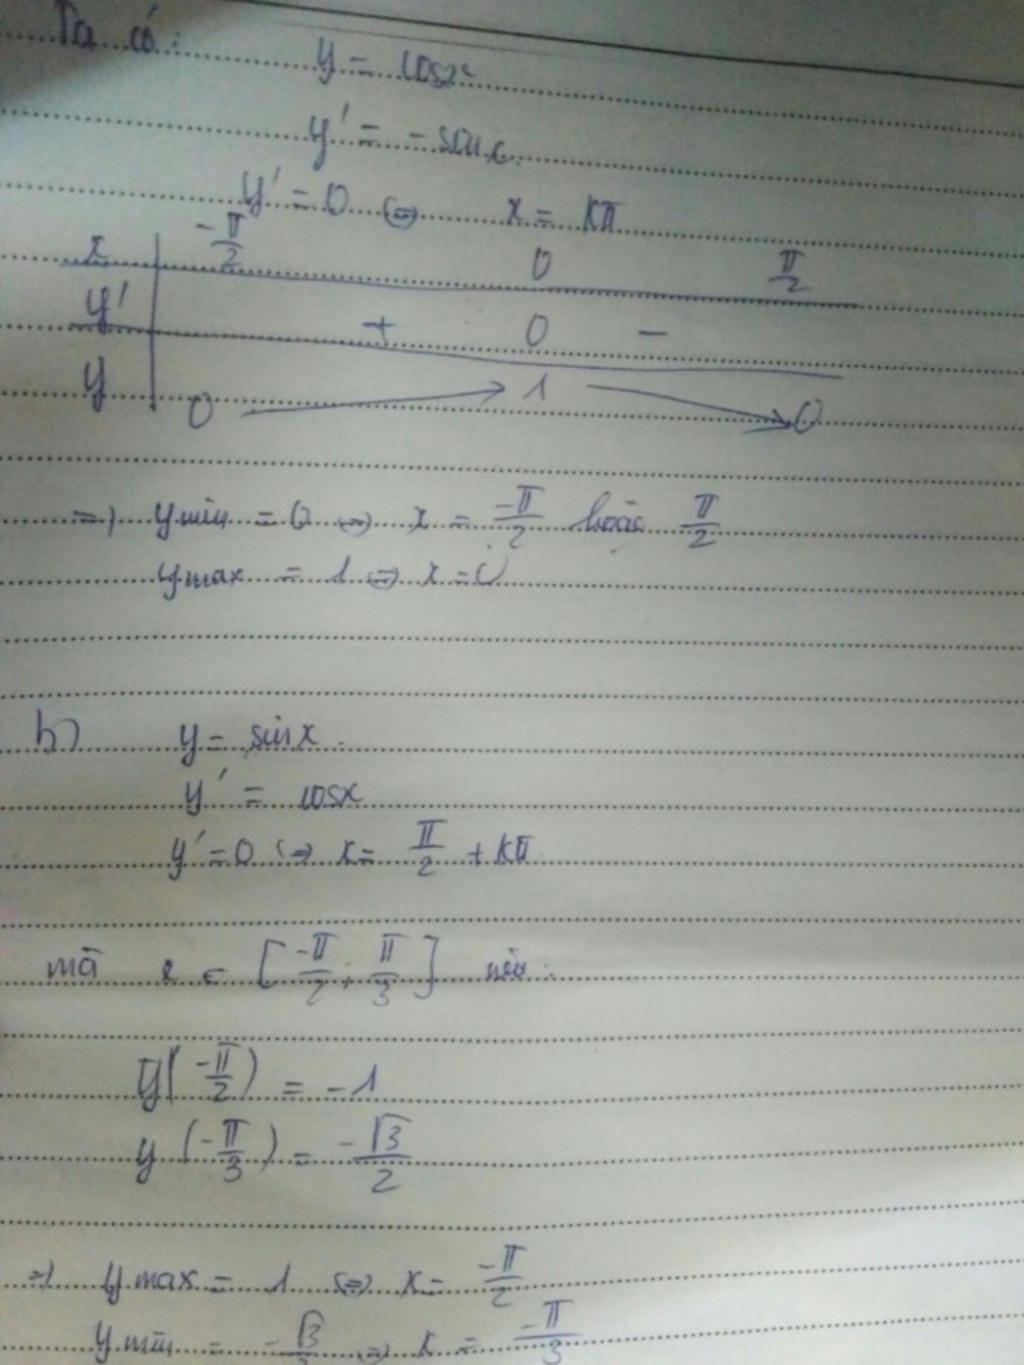 Ta có:
y = cosx
y' = - sinx
y' = 0 ⇔ x = kπ
x | -π/2 0 π/2
y' | + 0 -
y | 0 → 1 → 0
=) ymin = 0 ⇔ x = -π/2 hoặc π/2
ymax = 1 ⇔ x = 0
b) y = sinx
y' = cosx
y' = 0 ⇔ x = π/2 + kπ
mà x ∈ [-π/2; π/3] nên:
y(-π/2) = -1
y(-π/3) = -√3/2
=) ymax = 1 ⇔ x = -π/2
ymin = -√3/2 ⇔ x = -π/3